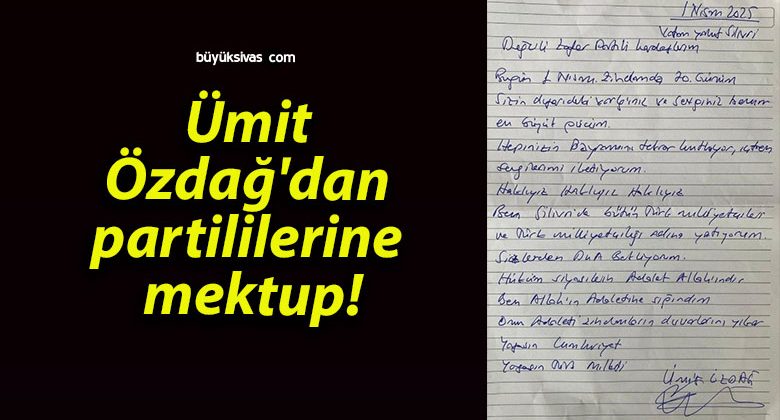 büyüksivas com
Ümit
Özdağ'dan
partililerine
mektup!
1 Nisan 2025
Vatan yahut Silivri
Değerli Zafer Partili kardeşlerim
Bugün 1 Nisan. Zindanda 70. Günüm
Sizin dışarıdaki varlığınız ve sevginiz benim
en büyük gücüm.
Hepinizin Bayramını tekrar kutluyor, içten
sevgilerimi iletiyorum.
Haklıyız Haklıyız Haklıyız
Ben Silivri'de bütün Türk milliyetçileri
ve Türk milliyetçiliği adına yatıyorum.
Sizlerden Dua Bekliyorum.
Hüküm siyasilerin Adalet Allah'ındır
Ben Allah'ın Adaletine sığındım
Onun Adaleti zindanların duvarlarını yıkar
Yaşasın Cumhuriyet
Yaşasın Türk Milleti
Ümit ÖZDAĞ